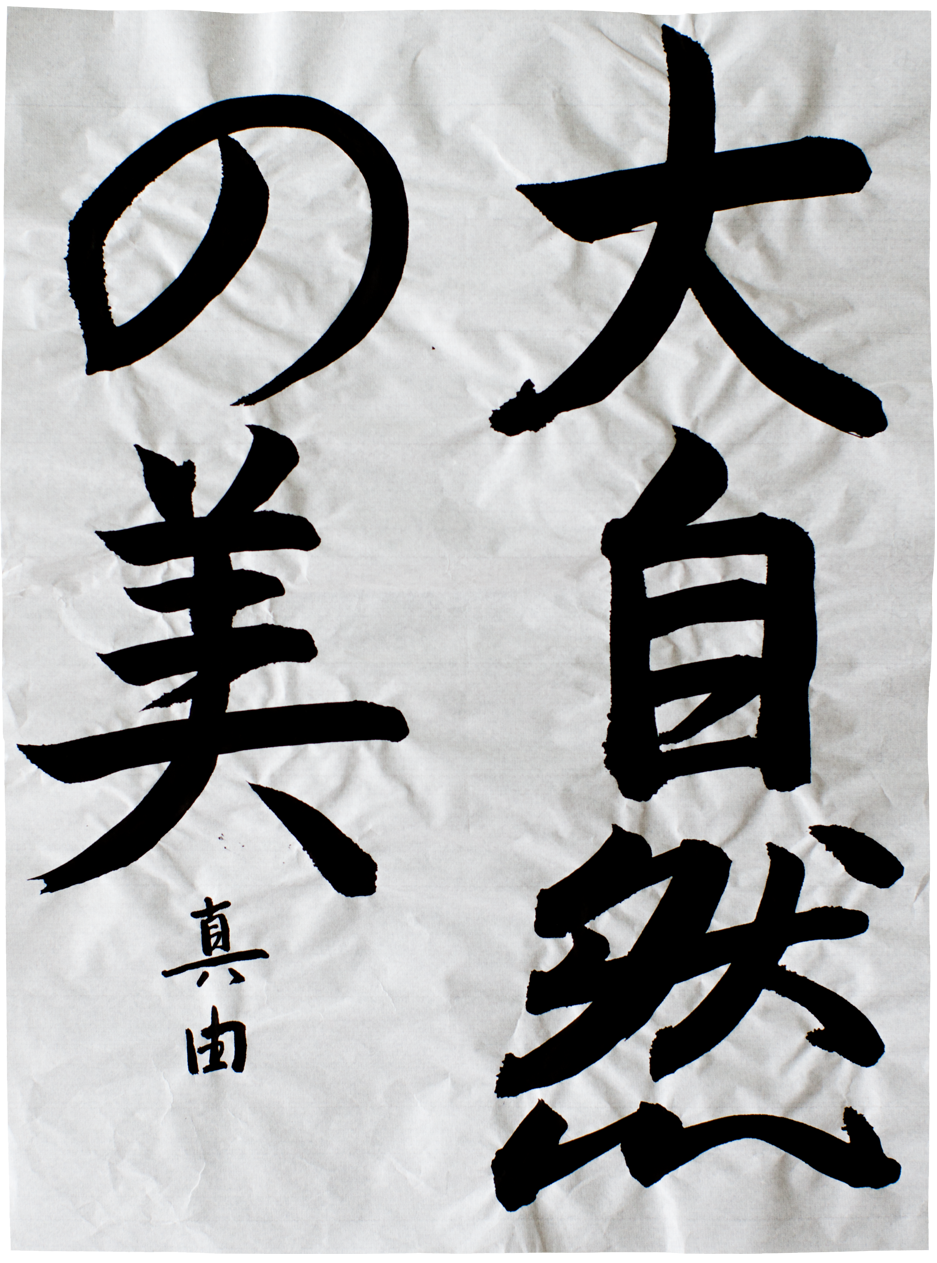 大自然
の美
真由